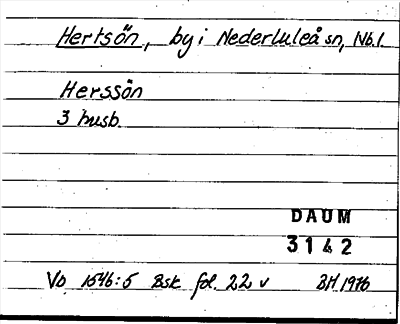 Hertsön, by i Nederluleå sn, Nb.l.
Herssön
3 husb.
DAUM
3142
Vb 1546:5 Bsk fol. 22 v BH 1976